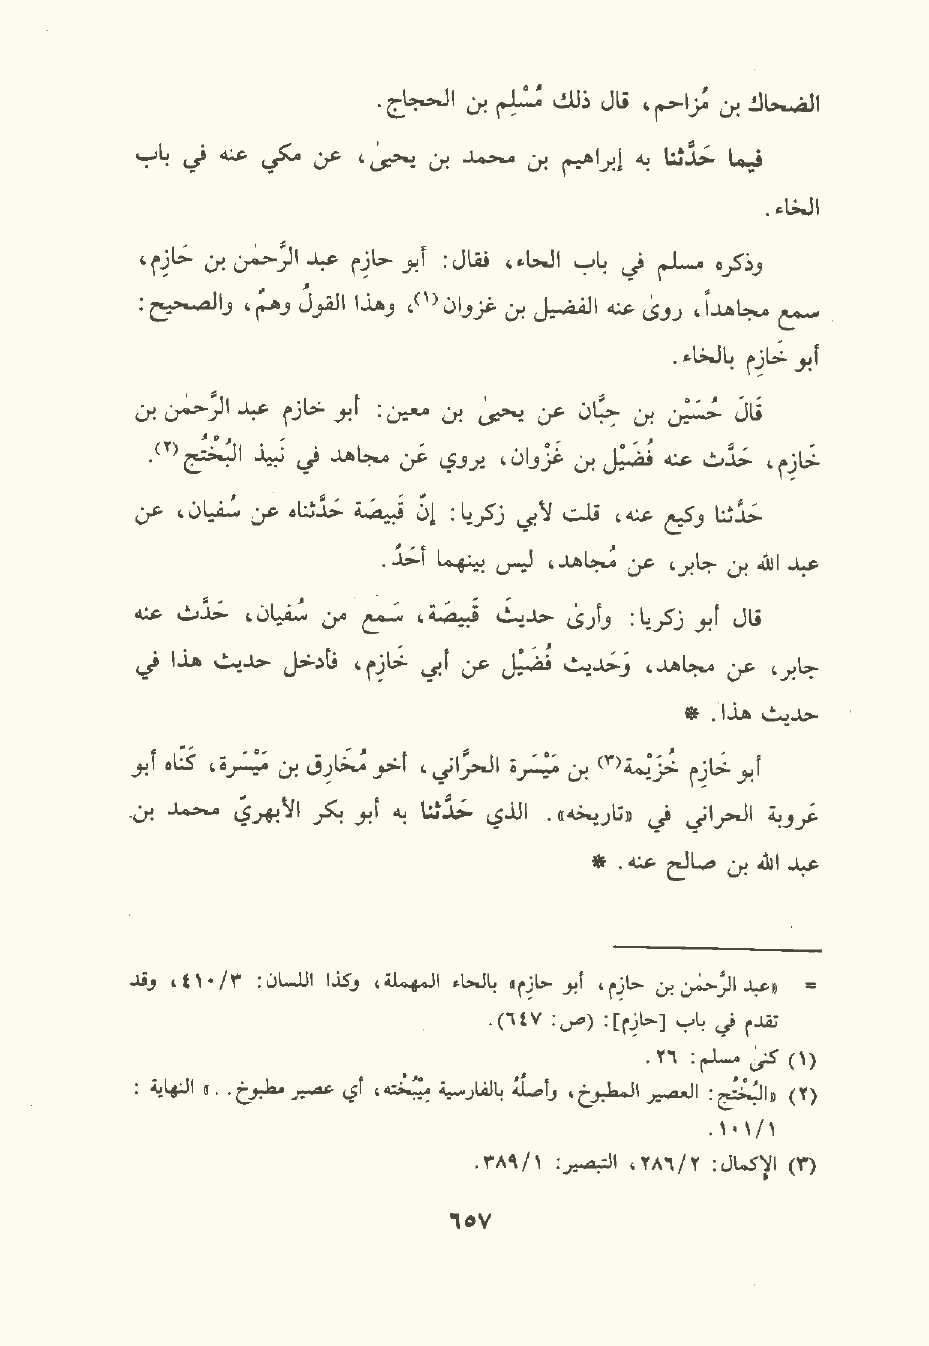 الضحاك بن مُزاحم، قال ذلك مُسْلِم بن الحجاج.
فيما حَدَّثنا به إبراهيم بن محمد بن يحيىٰ، عن مكي عنه في باب
الخاء.
وذكره مسلم في باب الحاء، فقال: أبو حازم عبد الرَّحمٰن بن حَازِم،
سمع مجاهداً، روىٰ عنه الفضيل بن غزوان(١)، وهذا القولُ وهمٌ، والصحيح:
أبو خَازِم بالخاء.
قالَ حُسَيْن بن حِبَّان عن يحيىٰ بن معين: أبو حازم عبد الرَّحمٰن بن
خَازِم، حَدَّث عنه فُضَيْل بن غَزْوان، يروي عَن مجاهد في نَبيذ البُخْتُج(٢).
حَدَّثنا وكيع عنه، قلت لأبي زكريا: إنَّ قَبيصَة حَدَّثناه عن سُفيان، عن
عبد الله بن جابر، عن مُجاهد، ليس بينهما أحَد.
قال أبو زكريا: وأرىٰ حديثَ قَبيصَة، سَمع من سُفيان، حَدَّث عنه
جابر، عن مجاهد، وَحَديث فُضَيْل عن أبي خَازِم، فأدخل حديث هذا في
حديث هذا. *
أبو خَازِم خُزَيْمة(٣) بن مَيْسَرة الحرَّاني، أخو مُخَارِق بن مَيْسَرة، كَنَّاه أبو
عَروبة الحراني في «تاريخه». الذي حَدَّثنا به أبو بكر الأبهريّ محمد بن
عبد الله بن صالح عنه. *
= «عبد الرَّحمٰن بن حازِم، أبو حازِم» بالحاء المهملة، وكذا اللسان: ٣/ ٤١٠، وقد
تقدم في باب [حازِم]: (ص: ٦٤٧).
(١) كنىٰ مسلم: ٢٦.
(٢) «البُخْتُج: العصير المطبوخ، وأصلُهُ بالفارسية مِيْبُخْتَه، أي عصير مطبوخ. .» النهاية:
١/ ١٠١.
(٣) الإكمال: ٢/ ٢٨٦، التبصير: ١/ ٣٨٩.
٦٥٧